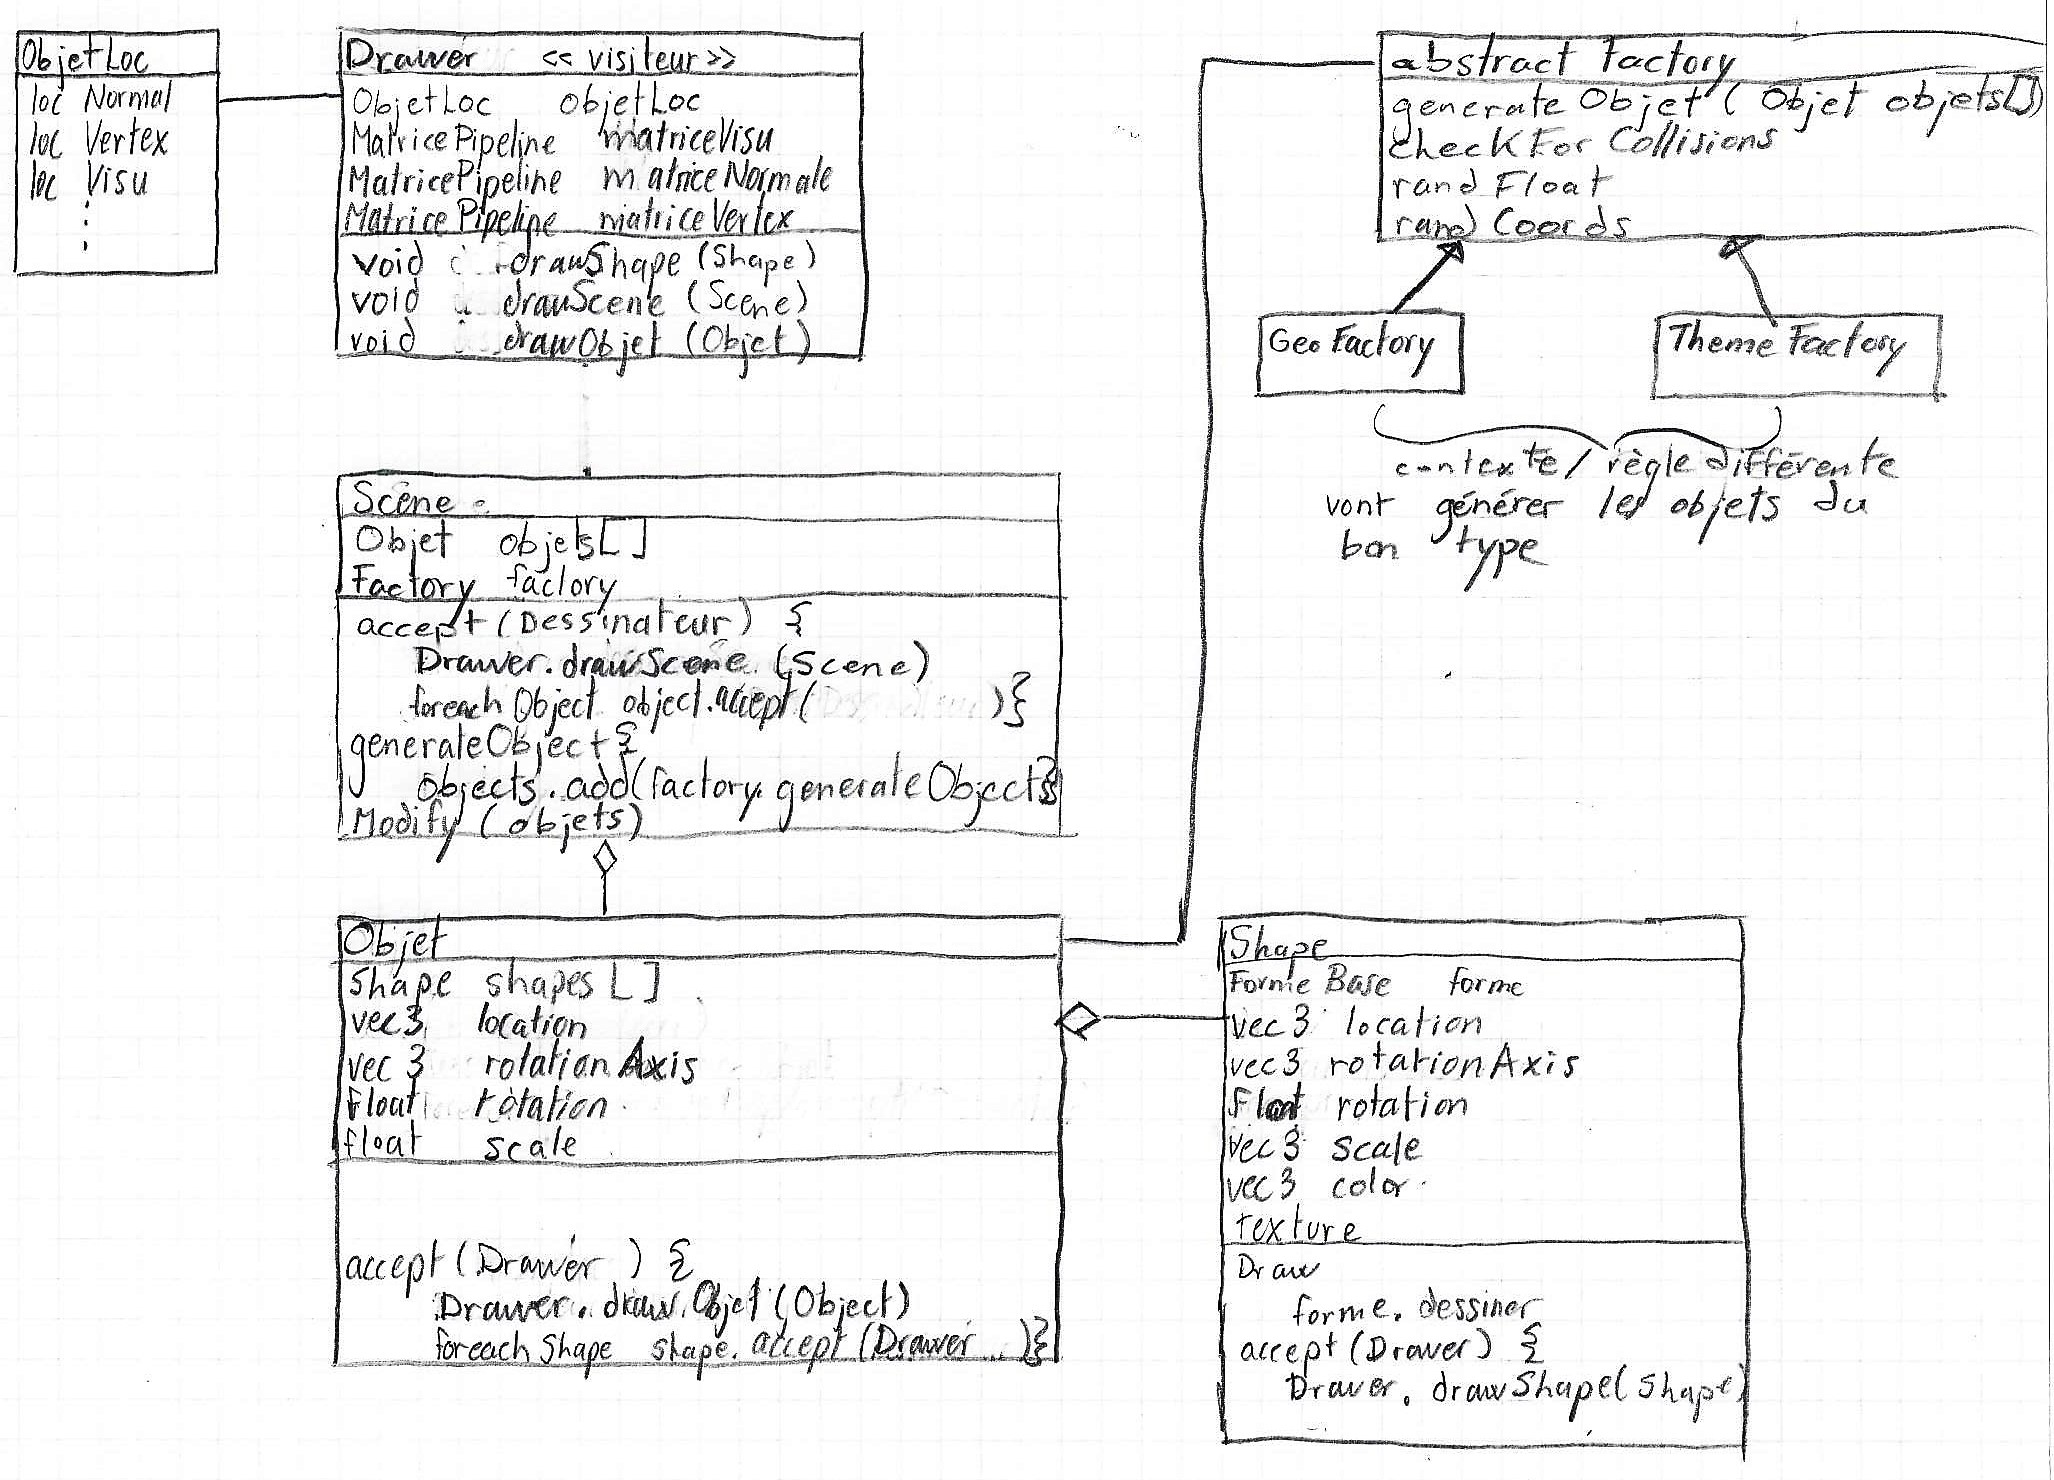 ObjetLoc
loc Normal
loc Vertex
loc Visu
Drawer << visiteur >>
ObjetLoc objetLoc
MatricePipeline matriceVisu
MatricePipeline matriceNormale
MatricePipeline matriceVertex
void drawShape (Shape)
void drawScene (Scene)
void drawObjet (Objet)
abstract Factory
generate Objet ( Objet objets[])
check For Collisions
rand Float
rand Coords
Geo Factory
Theme Factory
contexte / règle différente
vont générer les objets du
bon type
Scene
Objet objets[]
Factory factory
accept (Dessinateur) {
Drawer.drawScene (Scene)
foreach Object object.accept( )}
generateObject {
objects.add(factory.generateObjects}
Modify (objets)
Objet
Shape shapes []
vec3 location
vec3 rotationAxis
float rotation
float scale
accept (Drawer ) {
Drawer.drawObjet (Object)
foreach Shape shape.accept (Drawer )}
Shape
Forme Base forme
vec3 location
vec3 rotationAxis
float rotation
vec3 scale
vec3 color
texture
Draw
forme.dessiner
accept (Drawer) {
Drawer.drawShape(Shape)